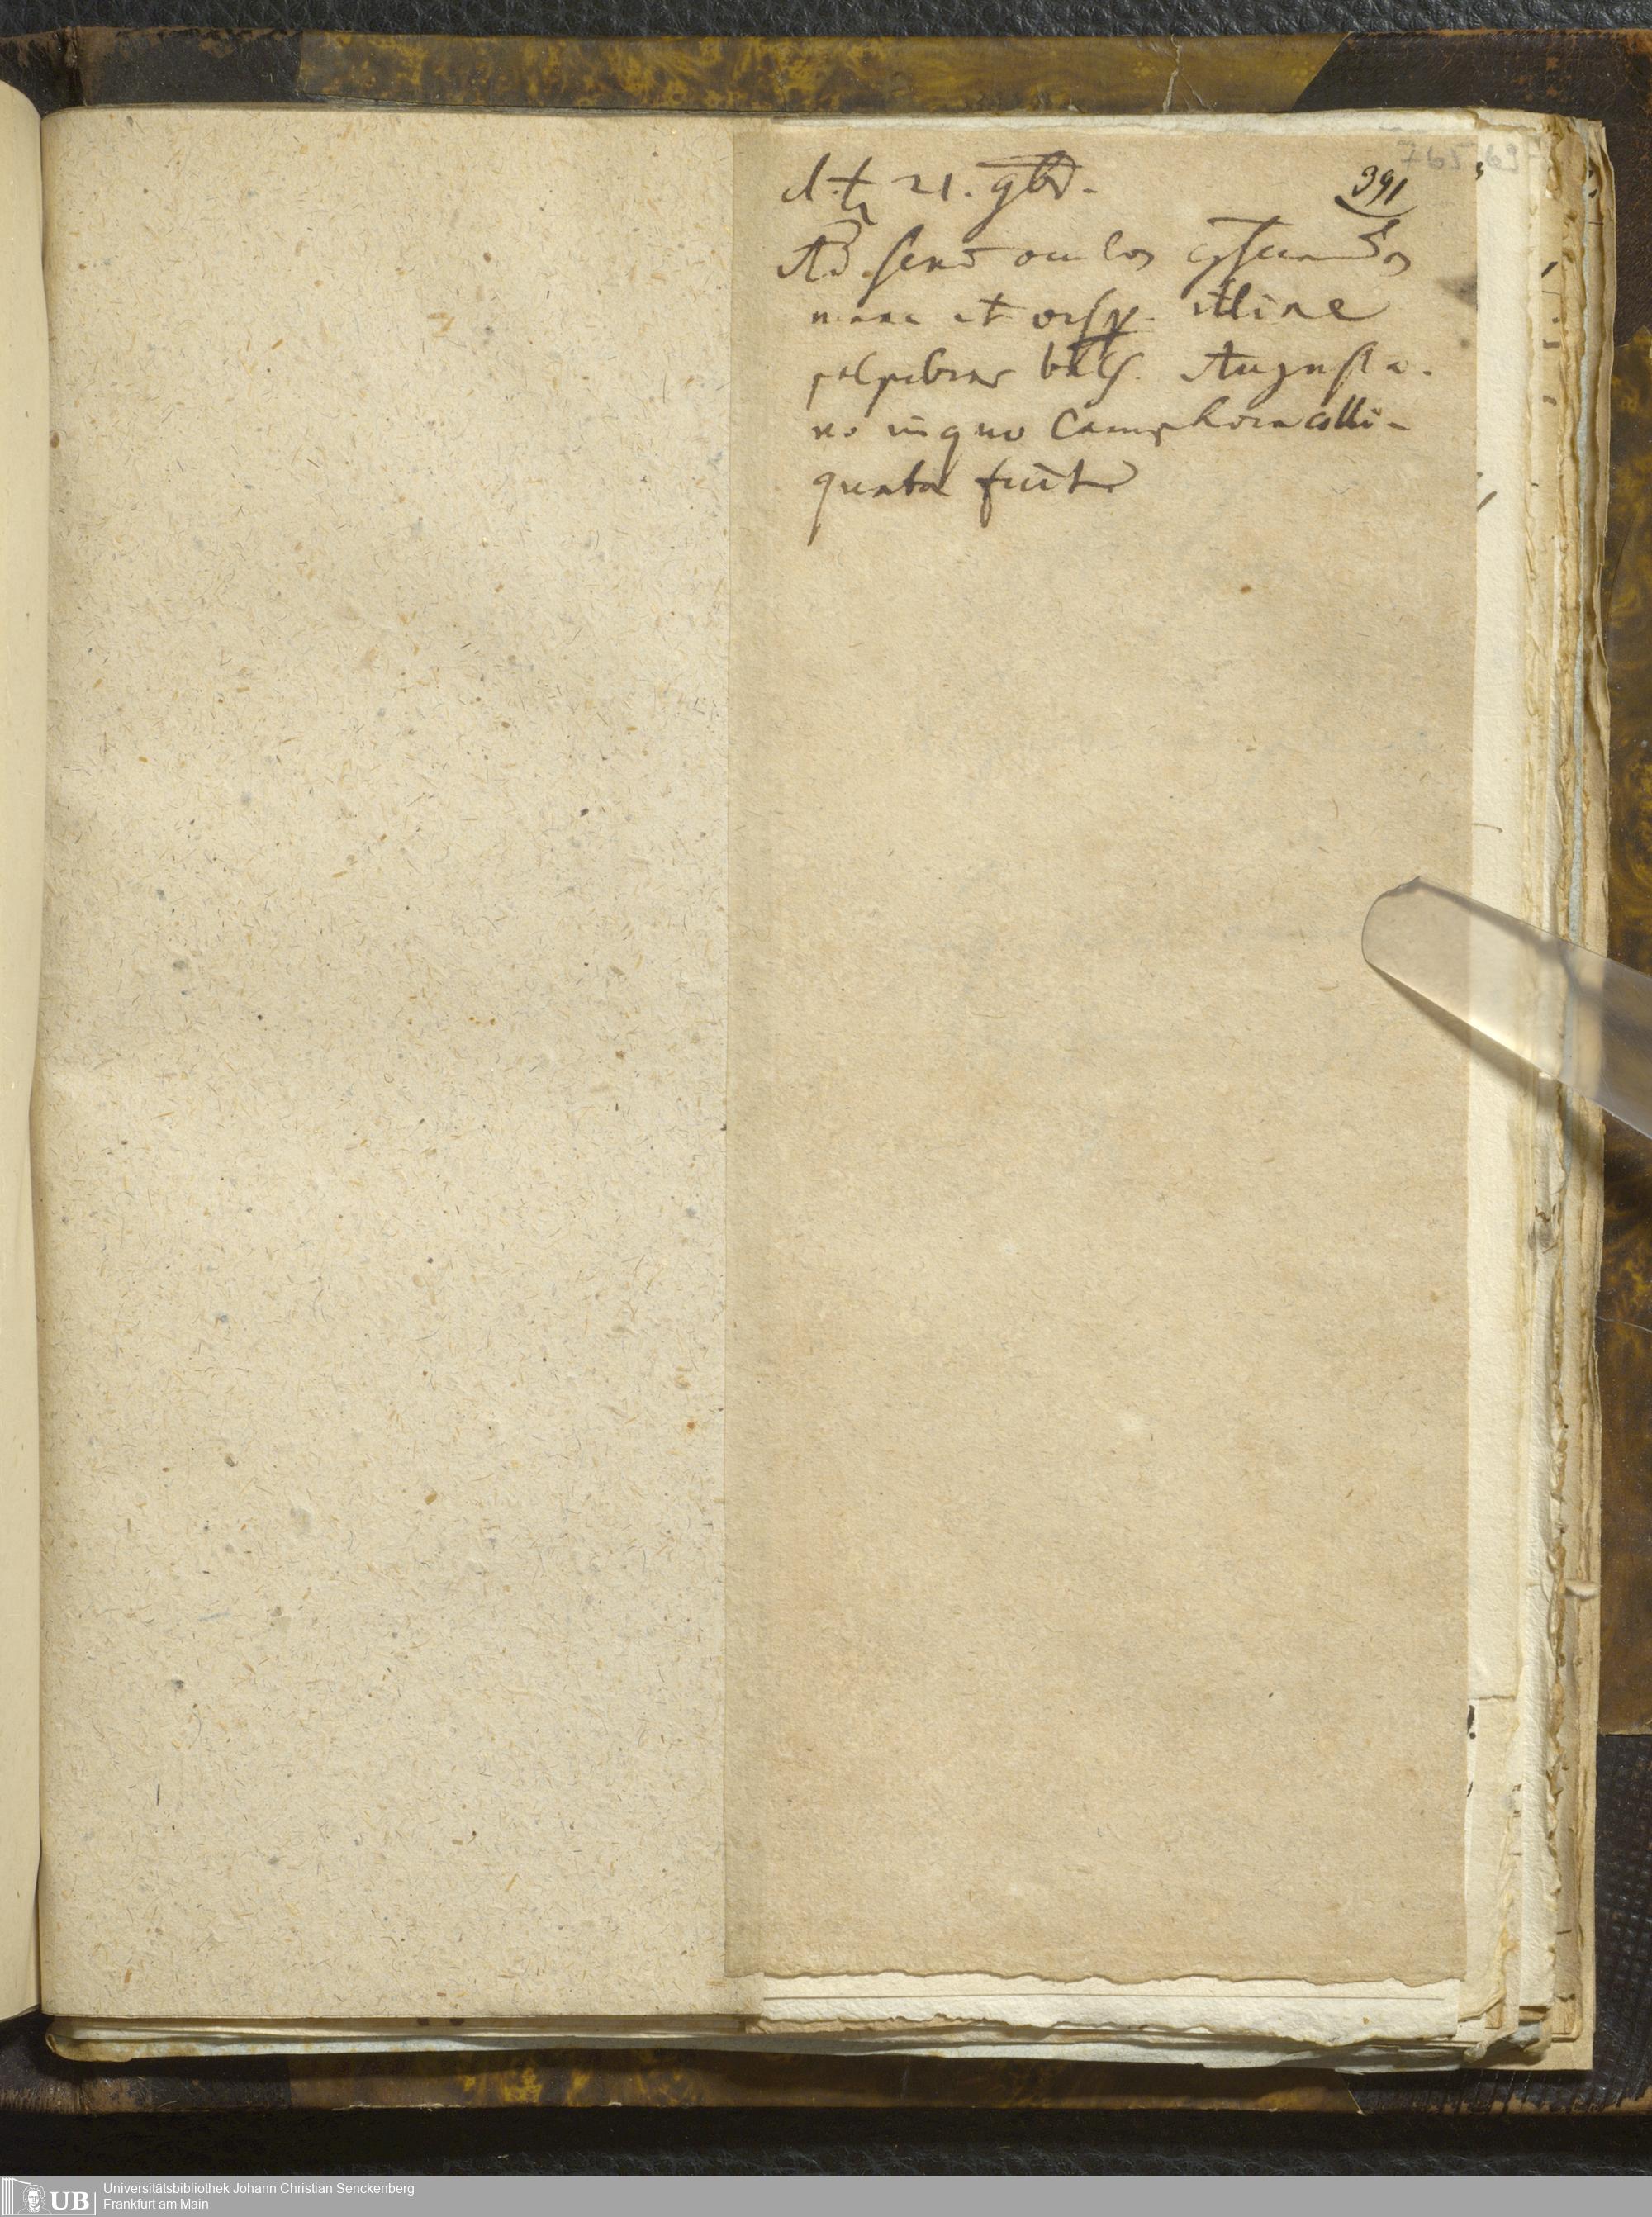 765,69
391
d. ♄ 21. 9br.
Ad senū oculos cōservandos
mane et vesp. illine
palpebras bals. Augusta-
no in quo Camphora colli-
quata fuit
UB Universitätsbibliothek Johann Christian Senckenberg
Frankfurt am Main